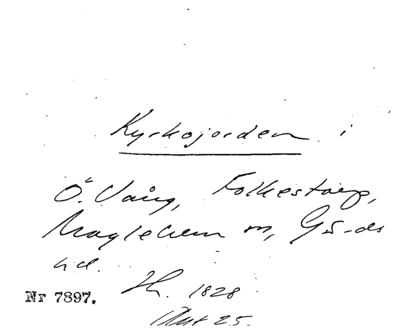 Kyrkojorden i
Ö. Vång, Folkestorp,
Maglehem sn, Gä-ds
hd.
Nr 7897. Hr. 1828
Akt 25.